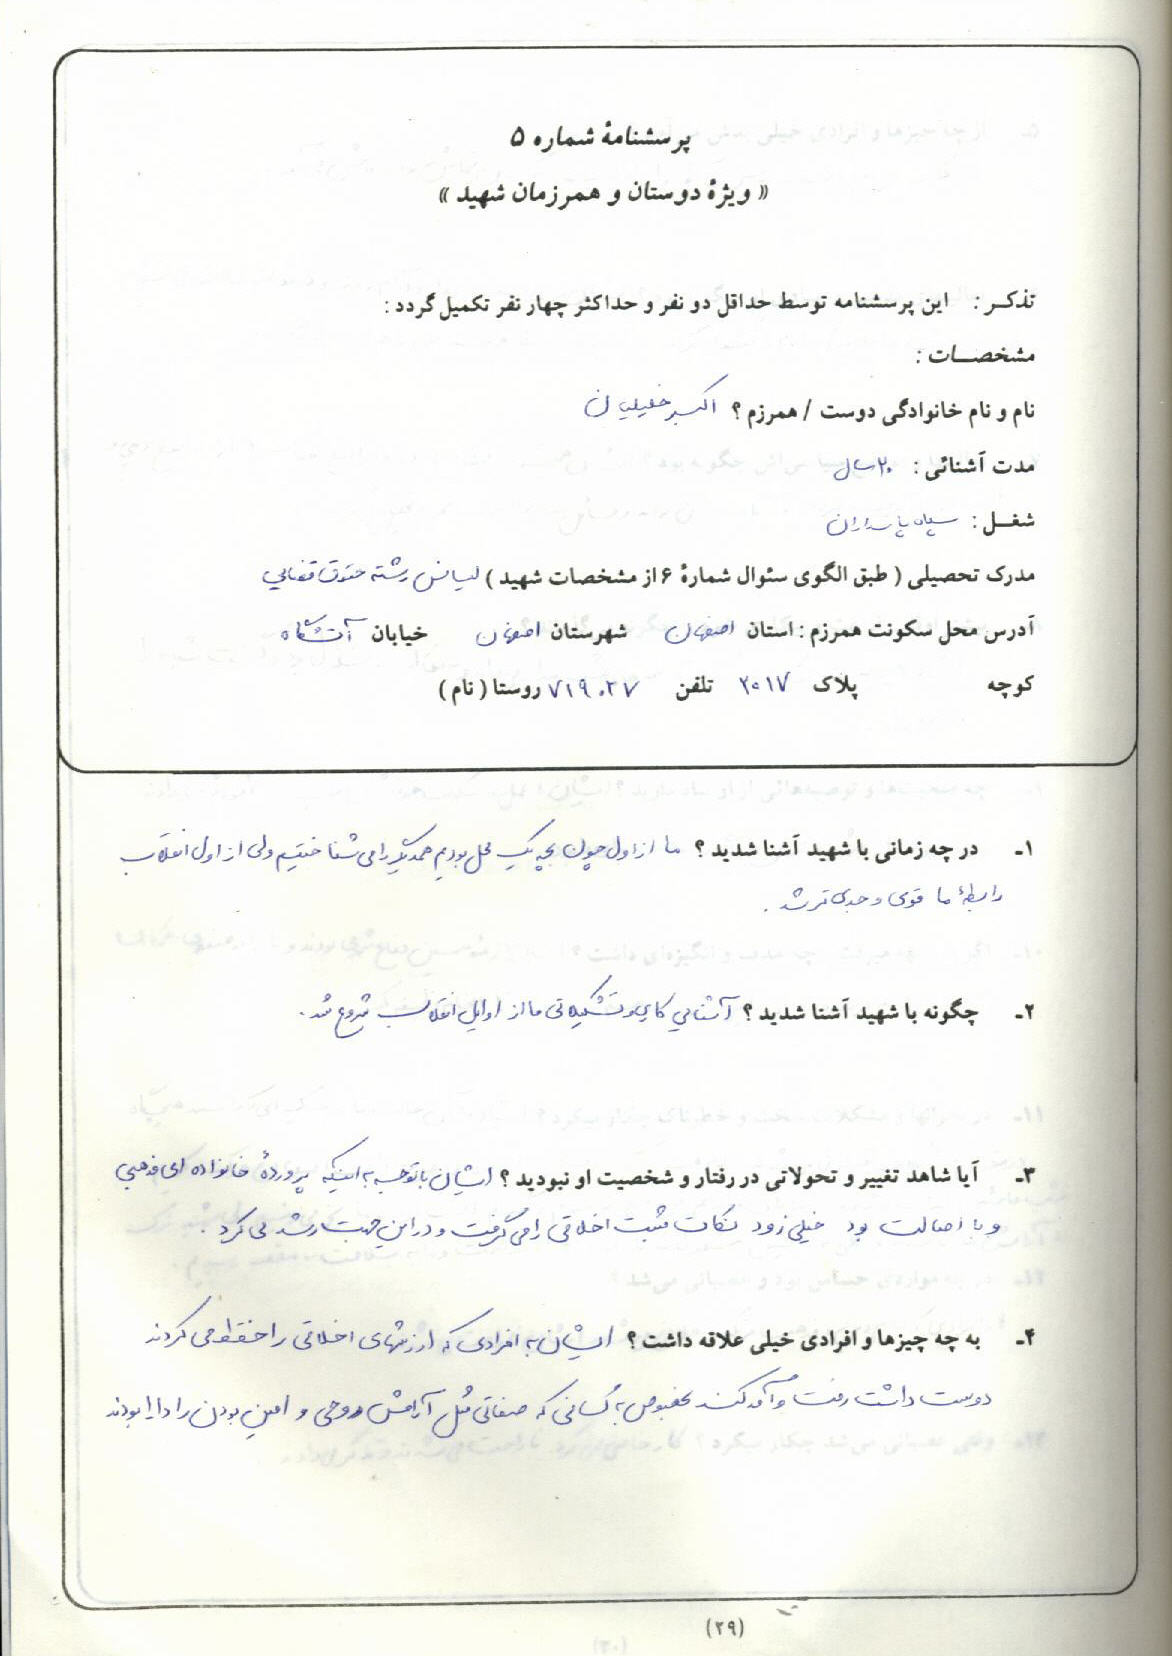 پرسشنامهٔ شماره ۵
« ویژهٔ دوستان و همرزمان شهید »
تذکر : این پرسشنامه توسط حداقل دو نفر و حداکثر چهار نفر تکمیل گردد :
مشخصات :
نام و نام خانوادگی دوست / همرزم ؟ اکبر خلیلیان
مدت آشنائی : ۲۰ سال
شغل : سپاه پاسداران
مدرک تحصیلی ( طبق الگوی سئوال شمارهٔ ۶ از مشخصات شهید ) لیسانس رشته حقوق قضایی
آدرس محل سکونت همرزم : استان اصفهان شهرستان اصفهان خیابان آتشگاه
کوچه پلاک تلفن ۷۱۹۰۲۷ روستا ( نام )
۱ـ در چه زمانی با شهید آشنا شدید ؟ ما از اول چون بچه یک محل بودیم همدیگر را می شناختیم ولی از اول انقلاب
رابطهٔ ما قوی و جدی تر شد .
۲ـ چگونه با شهید آشنا شدید ؟ آشنایی کاری و تشکیلاتی ما از اوایل انقلاب شروع شد .
۳ـ آیا شاهد تغییر و تحولاتی در رفتار و شخصیت او نبودید ؟ ایشان با توجه به اینکه پروردهٔ خانواده ای مذهبی
و با اصالت بود خیلی زود نکات مثبت اخلاقی را می گرفت و در این جهت رشد می کرد .
۴ـ به چه چیزها و افرادی خیلی علاقه داشت ؟ ایشان به افرادی که ارزشهای اخلاقی را حفظ می کردند
دوست داشت رفت و آمد کند بخصوص به کسانی که صفاتی مثل آرامش روحی و امین بودن را دارا بودند
(۲۹)